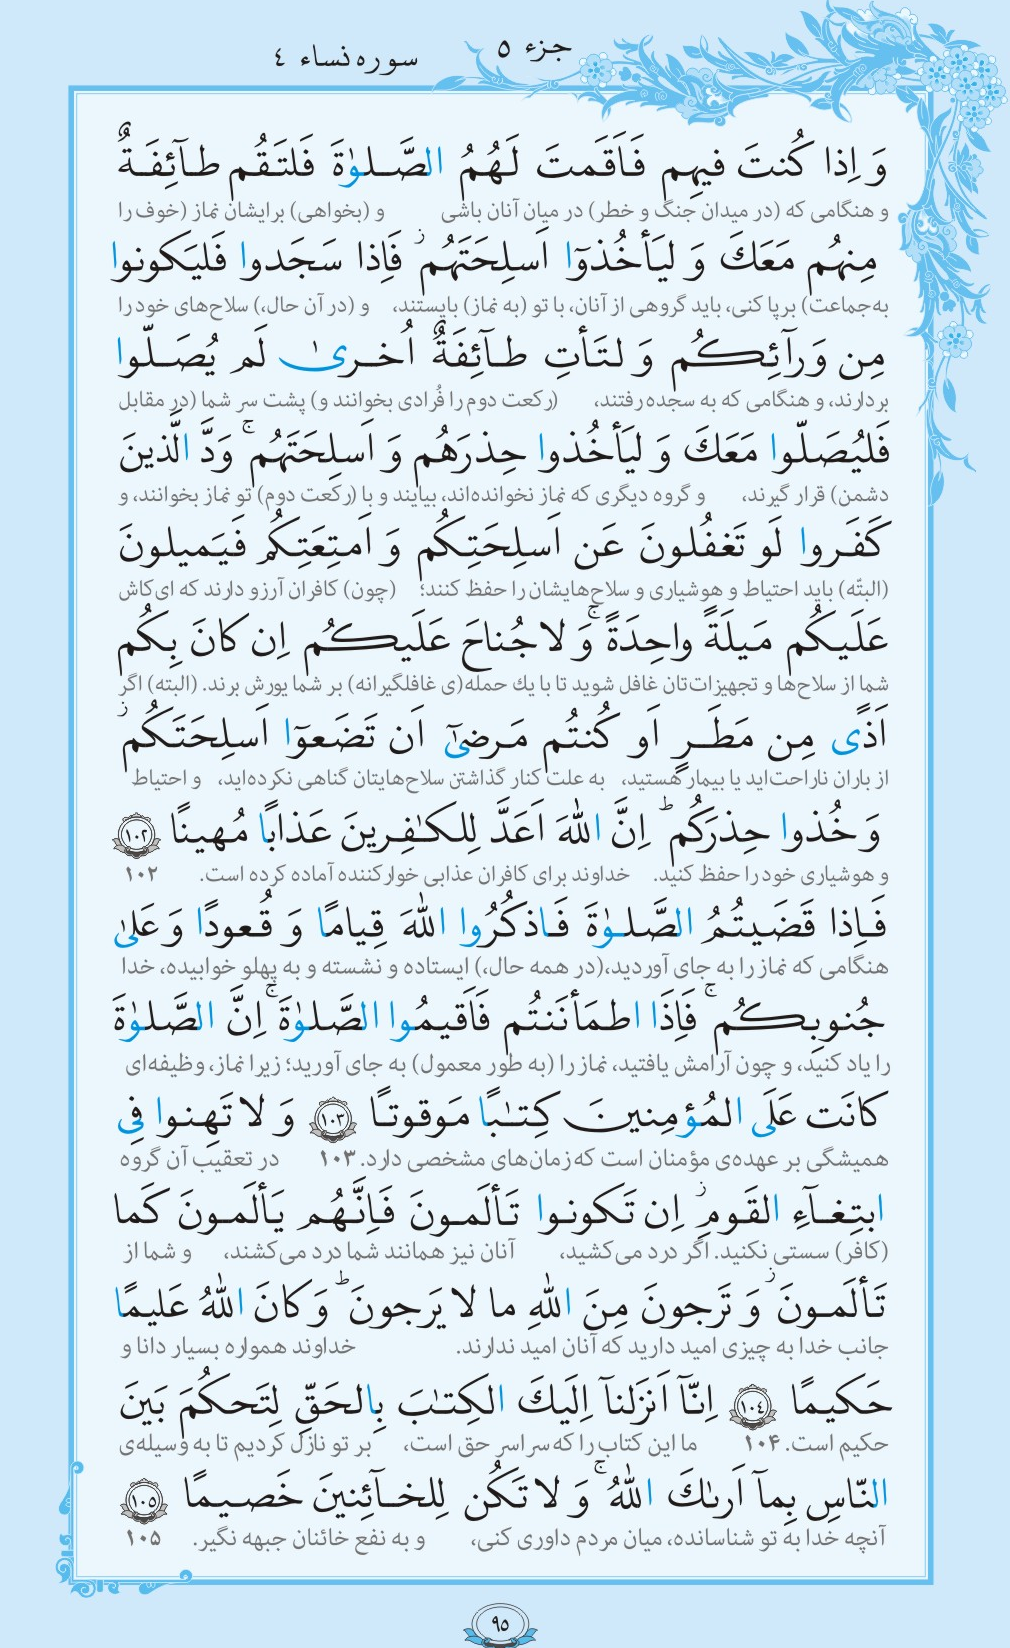 جزء ٥
سوره نساء ٤
وَ اِذا كُنتَ فيهِم فَاَقَمتَ لَهُمُ الصَّلوٰةَ فَلتَقُم طآئِفَةٌ
و هنگامی که (در میدان جنگ و خطر) در میان آنان باشی و (بخواهی) برایشان نماز (خوف را
مِنهُم مَعَكَ وَ ليَأخُذوٓا اَسلِحَتَهُم ۖز فَاِذا سَجَدوا فَليَكونوا
به‌جماعت) برپا کنی، باید گروهی از آنان، با تو (به نماز) بایستند، و (در آن حال،) سلاح‌های خود را
مِن وَرآئِكُم وَ لتَأتِ طآئِفَةٌ اُخرىٰ لَم يُصَلّوا
بردارند، و هنگامی که به سجده رفتند، (رکعت دوم را فُرادی بخوانند و) پشت سر شما (در مقابل
فَليُصَلّوا مَعَكَ وَ ليَأخُذوا حِذرَهُم وَ اَسلِحَتَهُم ۚ وَدَّ الَّذينَ
دشمن) قرار گیرند، و گروه دیگری که نماز نخوانده‌اند، بیایند و با (رکعت دوم) تو نماز بخوانند، و
كَفَروا لَو تَغفُلونَ عَن اَسلِحَتِكُم وَ اَمتِعَتِكُم فَيَميلونَ
(البتّه) باید احتیاط و هوشیاری و سلاح‌هایشان را حفظ کنند؛ (چون) کافران آرزو دارند که ای کاش
عَلَيكُم مَيلَةً واحِدَةً ۚ وَ لا جُناحَ عَلَيكُم اِن كانَ بِكُم
شما از سلاح‌ها و تجهیزات‌تان غافل شوید تا با یك حمله(ی غافلگیرانه) بر شما یورش برند. (البته) اگر
اَذًى مِن مَطَرٍ اَو كُنتُم مَرضىٰٓ اَن تَضَعوٓا اَسلِحَتَكُم ز
از باران ناراحت‌اید یا بیمار هستید، به علت کنار گذاشتن سلاح‌هایتان گناهی نکرده‌اید، و احتیاط
وَ خُذوا حِذرَكُم ؕ اِنَّ اللّٰهَ اَعَدَّ لِلكٰفِرينَ عَذابًا مُهينًا ١٠٢
و هوشیاری خود را حفظ کنید. خداوند برای کافران عذابی خوارکننده آماده کرده است. ۱۰۲
فَاِذا قَضَيتُمُ الصَّلوٰةَ فَاذكُرُوا اللّٰهَ قِيامًا وَ قُعودًا وَ عَلىٰ
هنگامی که نماز را به جای آوردید،(در همه حال،) ایستاده و نشسته و به پهلو خوابیده، خدا
جُنوبِكُم ۚ فَاِذَا اطمَأنَنتُم فَاَقيمُوا الصَّلوٰةَ ۚ اِنَّ الصَّلوٰةَ
را یاد کنید، و چون آرامش یافتید، نماز را (به طور معمول) به جای آورید؛ زیرا نماز، وظیفه‌ای
كانَت عَلَى المُؤمِنينَ كِتٰبًا مَوقوتًا ١٠٣ وَ لا تَهِنوا فِى
همیشگی بر عهده‌ی مؤمنان است که زمان‌های مشخصی دارد. ۱۰۳ در تعقیب آن گروه
ابتِغآءِ القَومِ ز اِن تَكونوا تَألَمونَ فَاِنَّهُم يَألَمونَ كَما
(کافر) سستی نکنید. اگر درد می‌کشید، آنان نیز همانند شما درد می‌کشند، و شما از
تَألَمونَ ز وَ تَرجونَ مِنَ اللّٰهِ ما لا يَرجونَ ؕ وَ كانَ اللّٰهُ عَليمًا
جانب خدا به چیزی امید دارید که آنان امید ندارند. خداوند همواره بسیار دانا و
حَكيمًا ١٠٤ اِنّآ اَنزَلنآ اِلَيكَ الكِتٰبَ بِالحَقِّ لِتَحكُمَ بَينَ
حکیم است. ۱۰۴ ما این کتاب را که سراسر حق است، بر تو نازل کردیم تا به وسیله‌ی
النّاسِ بِمآ اَرىٰكَ اللّٰهُ ۚ وَ لا تَكُن لِلخآئِنينَ خَصيمًا ١٠٥
آنچه خدا به تو شناسانده، میان مردم داوری کنی، و به نفع خائنان جبهه نگیر. ۱۰۵
۹۵